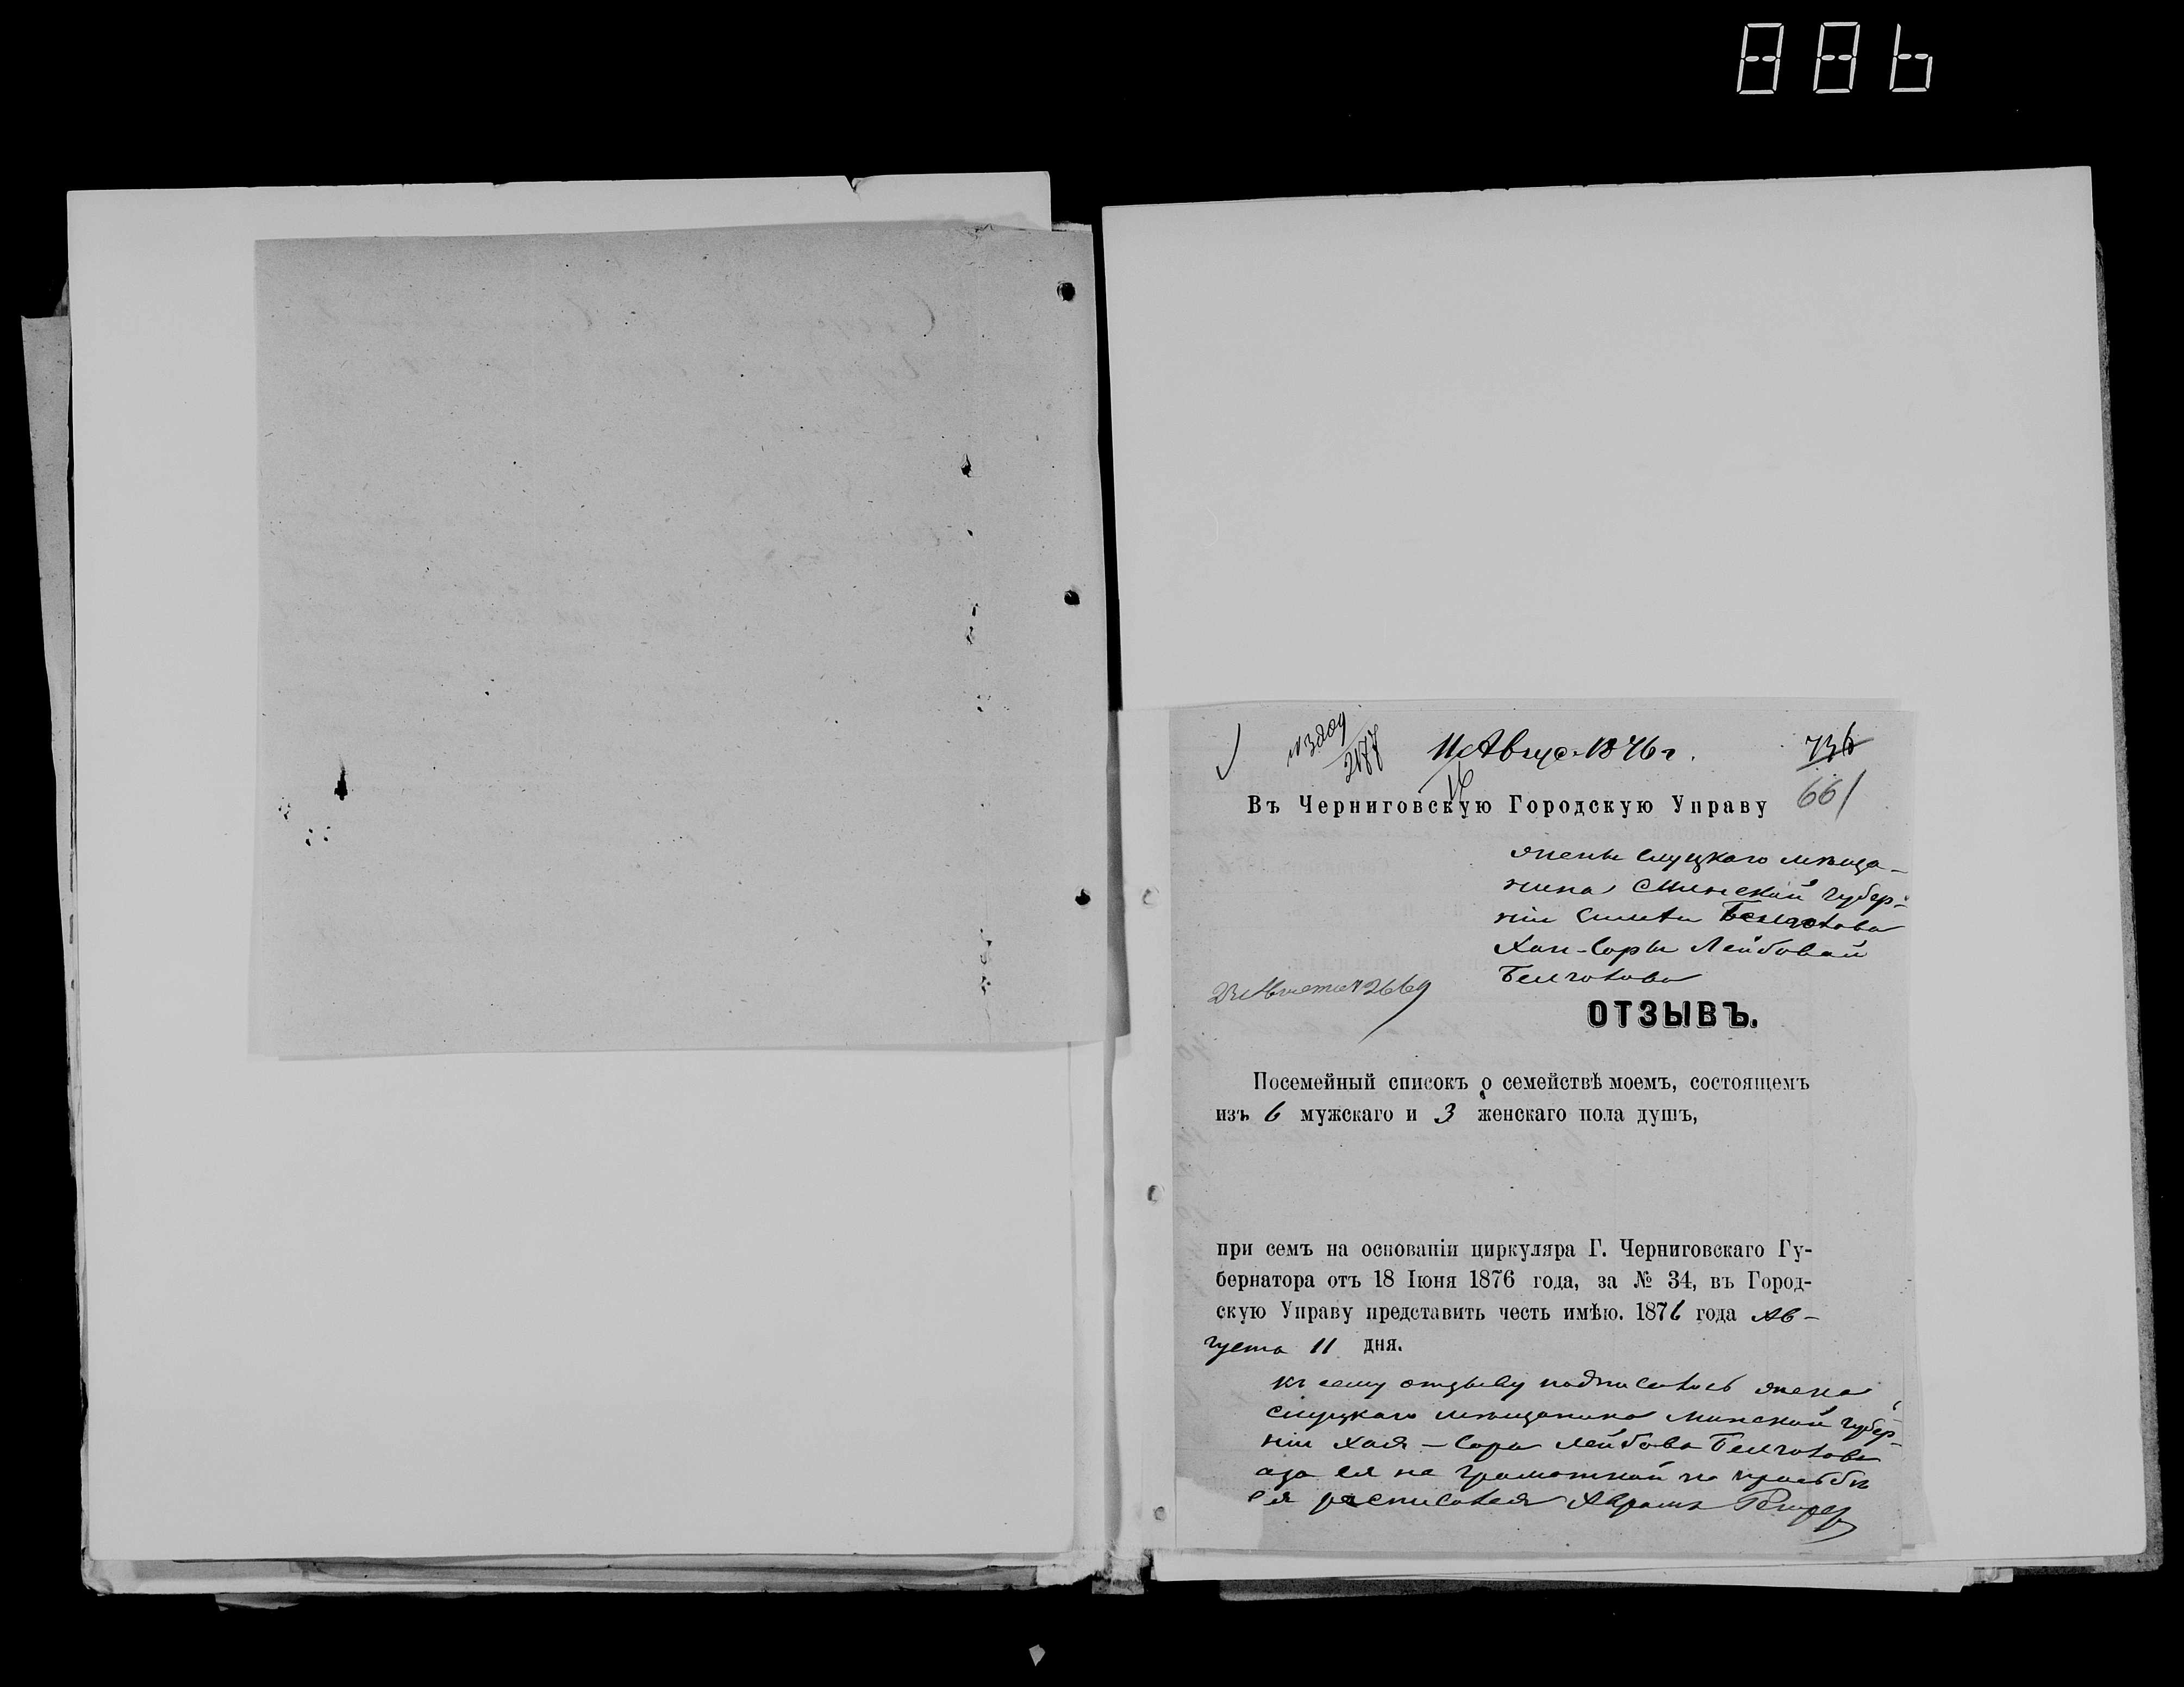 886
11 Авгус 1876 г.
736
16
661
Въ Черниговскую Городскую Управу
жены слуцкаго мѣща-
нина Минской губер-
ніи
Хаи-Соры Лейбовой
2669
ОТЗЫВЪ.
Посемейный списокъ о семействѣ моемъ, состоящемъ
изъ 6 мужскаго и 3 женскаго пола душъ,
при семъ на основаніи циркуляра Г. Черниговскаго Гу-
бернатора отъ 18 Іюня 1876 года, за № 34, въ Город-
скую Управу представить честь имѣю. 1876 года Ав-
густа 11 дня.
къ сему отзыву подписалась жена
слуцкаго мѣщанина Минской губер-
ніи Хая-Сора Лейбова
а за ея не грамотной по просьбѣ
ея росписался Абрамъ